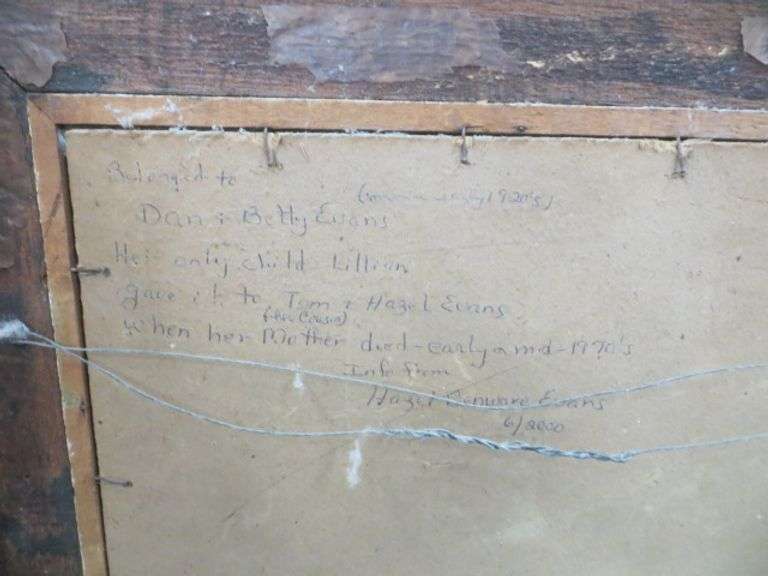 Belonged to
(1920's)
Dan & Betty Evans
Her only child Lillian
gave it to Tom & Hazel Evans
(her Cousin)
When her Mother died - early a md - 1970's
Info from
Hazel Evans
6/2000